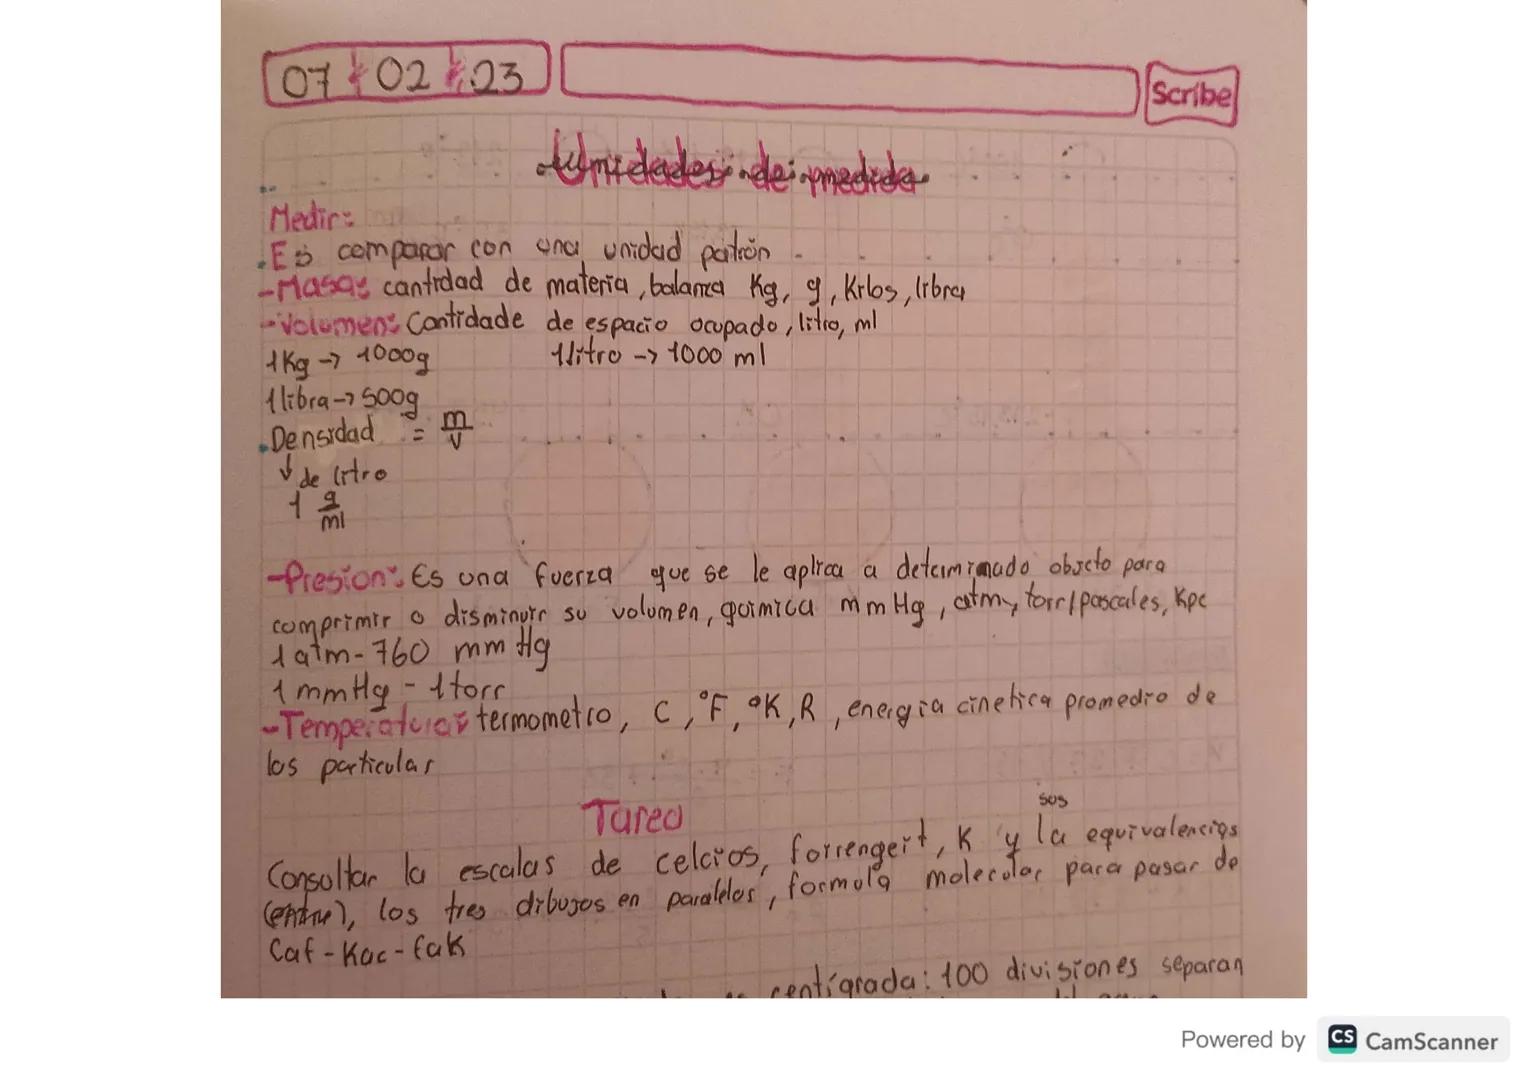 07 02 23
Scribe
Unidades de medida
Medir:
Es comparar con una unidad patrón
-Masa: cantidad de materia, balanza Kg, g, Kilos, libra
-Volumen: Cantidade de espacio ocupado, litro, ml
1Kg -> 1000g 1litro -> 1000 ml
1libra -> 500g
Densidad = m/v
↓ de litro
1 g/ml
-Presion: Es una fuerza que se le aplica a determinado objeto para
comprimir o disminuir su volumen, quimica mmHg, atm, torr/pascales, Kpc
1 atm - 760 mm Hg
1 mmHg - 1torr
-Temperatura: termometro, C, °F, °K, R, energia cinetica promedio de
los particular
Tarea
sus
Consultar la escalas de celcios, forrengeit, K y la equivalencias
(entre), los tres dibujos en paralelos, formula molecular para pasar de
Caf - Kac - fak
centígrada: 100 divisiones separan
Powered by CS CamScanner